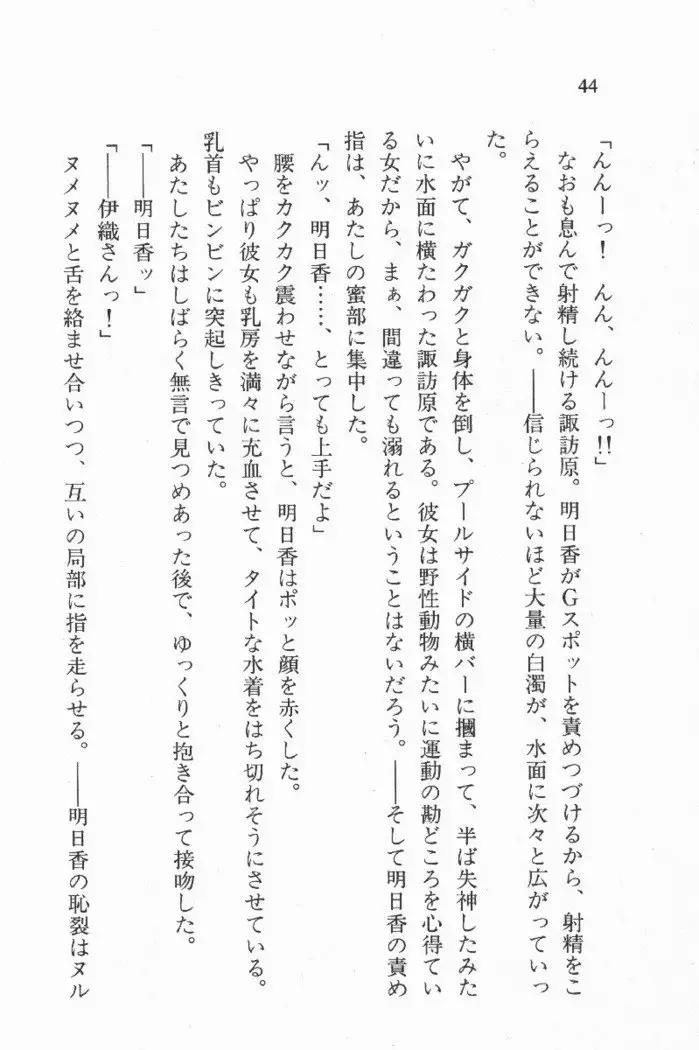 44
「んんーっ！　んん、んんーっ!!」
　なおも息んで射精し続ける諏訪原。明日香がGスポットを責めつづけるから、射精をこ
らえることができない。――信じられないほど大量の白濁が、水面に次々と広がっていっ
た。
　やがて、ガクガクと身体を倒し、プールサイドの横バーに摑まって、半ば失神したみた
いに水面に横たわった諏訪原である。彼女は野性動物みたいに運動の勘どころを心得てい
る女だから、まぁ、間違っても溺れるということはないだろう。――そして明日香の責め
指は、あたしの蜜部に集中した。
「んッ、明日香……、とっても上手だよ」
　腰をカクカク震わせながら言うと、明日香はポッと顔を赤くした。
　やっぱり彼女も乳房を満々に充血させて、タイトな水着をはち切れそうにさせている。
乳首もビンビンに突起しきっていた。
　あたしたちはしばらく無言で見つめあった後で、ゆっくりと抱き合って接吻した。
「――明日香ッ」
「――伊織さんっ！」
　ヌメヌメと舌を絡ませ合いつつ、互いの局部に指を走らせる。――明日香の恥裂はヌル